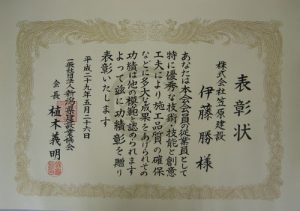 表彰状
株式会社笠原建設
伊藤勝様
あなたは本会会員の従業員として
特に優秀な技術・技能と創意
工夫により施工品質の確保
などに多大な成果をあげられその
功績は他の模範と認められます
よって茲に功績彰を贈り
表彰いたします
平成二十九年五月二十六日
一般社団法人新潟県建設業協会
会長植木義明